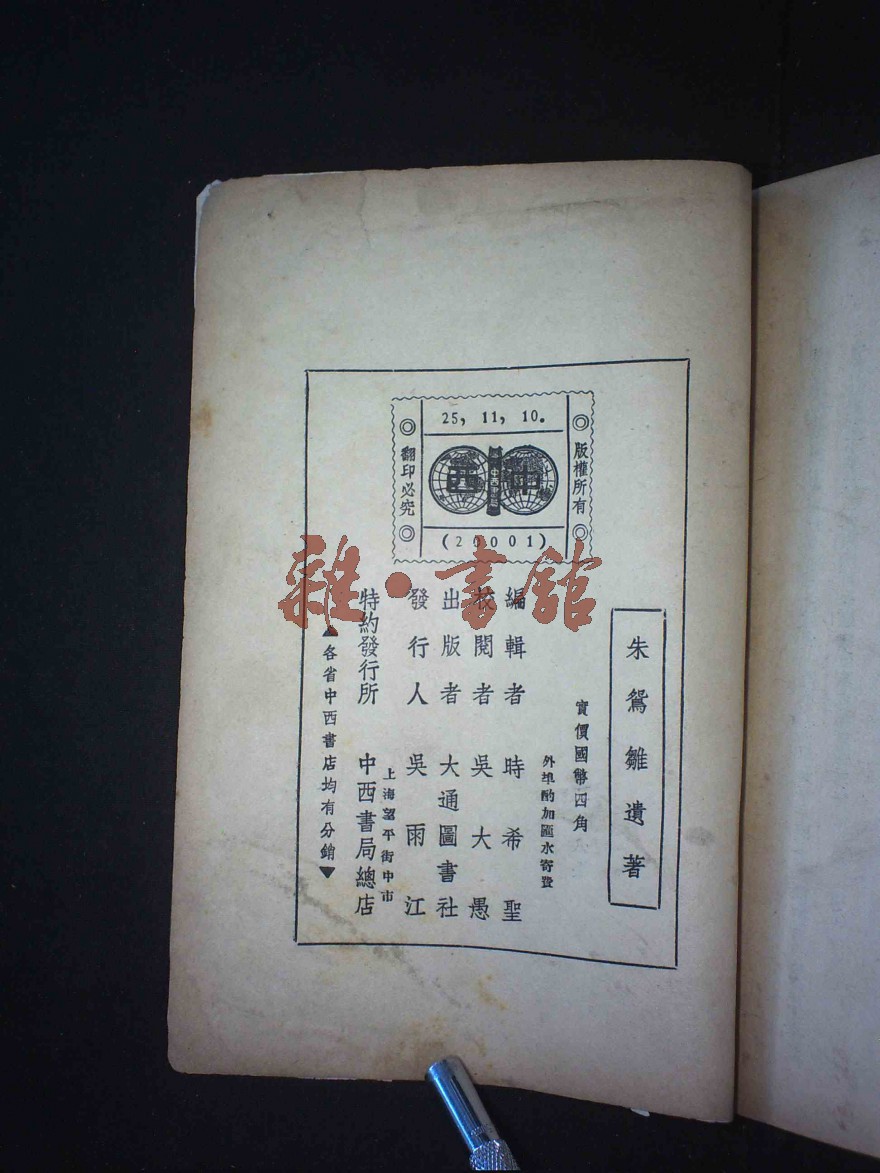 25, 11, 10.
版權所有
中西
中西書局
翻印必究
(20001)
雜·書館
朱鴛雛遺著
實價國幣四角
外埠酌加匯水寄費
編輯者 時希聖
校閱者 吳大愚
出版者 大通圖書社
發行人 吳雨江
上海望平街中市
特約發行所 中西書局總店
▲各省中西書店均有分銷▼